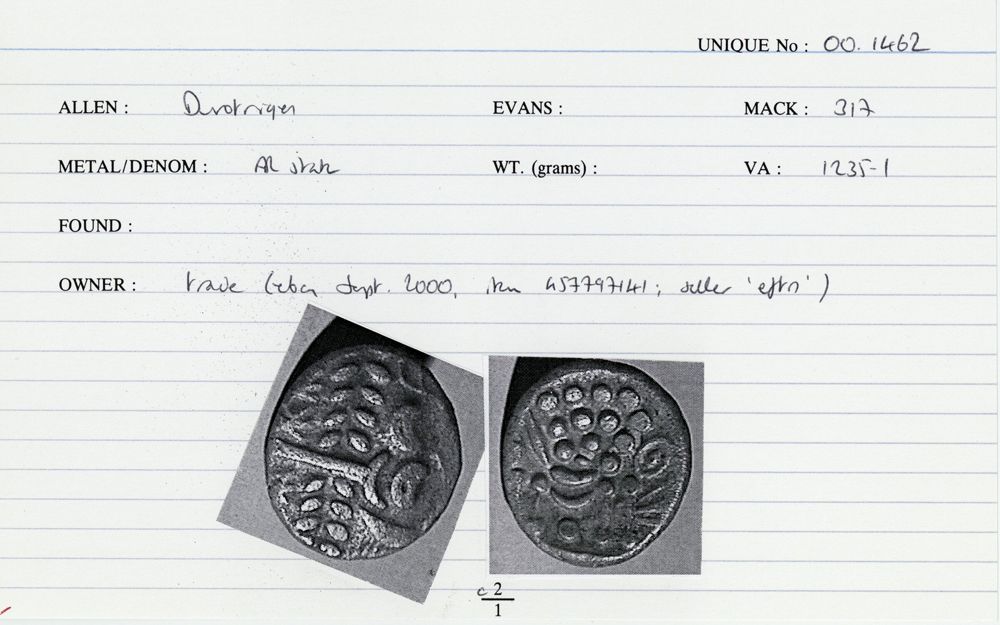 UNIQUE No : 00.1462
ALLEN : Durotriges EVANS : MACK : 317
METAL/DENOM : AR stater WT. (grams) : VA : 1235-1
FOUND :
OWNER : trade (ebay Sept. 2000, item 457797141; seller 'eftis')
c 2
1